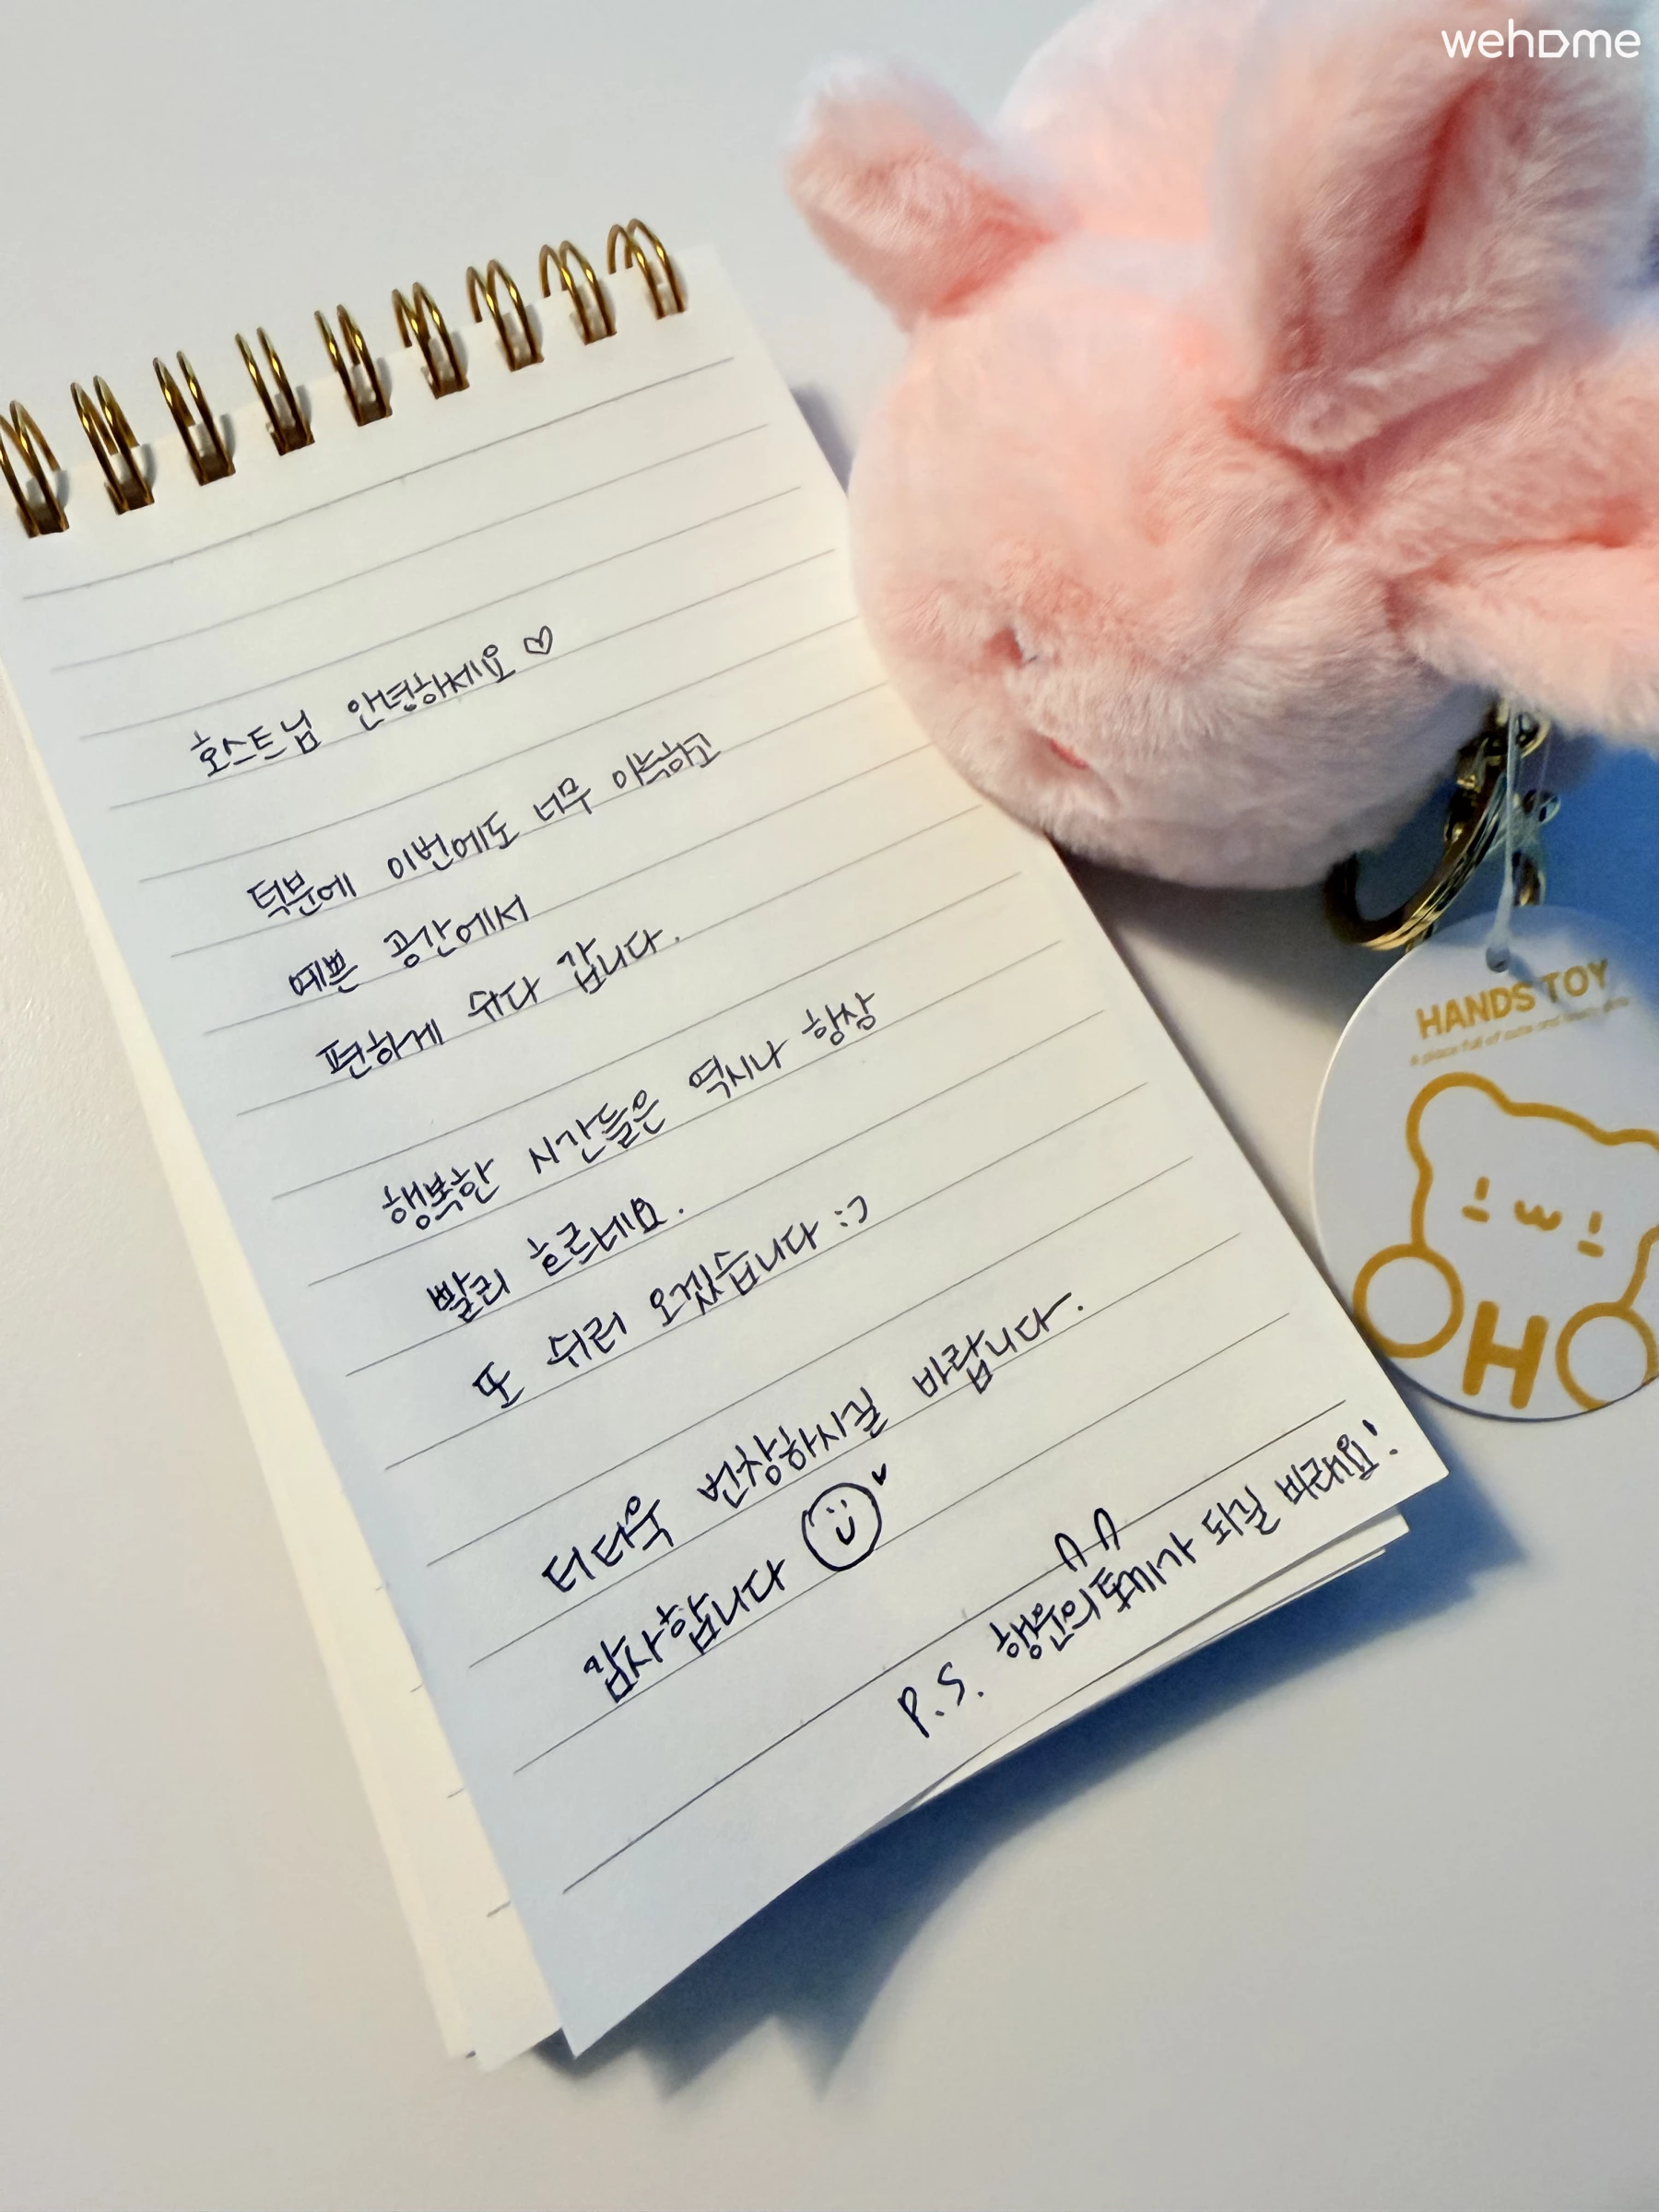 wehome
호스트님 안녕하세요 ♡
덕분에 이번에도 너무 아늑하고
예쁜 공간에서
편하게 쉬다 갑니다.
행복한 시간들은 역시나 항상
빨리 흐르네요.
또 쉬러 오겠습니다 :)
더더욱 번창하시길 바랍니다.
감사합니다
P.S. 행운의토끼가 되길 바래요!
HANDS TOY
A place full of cute and
HO